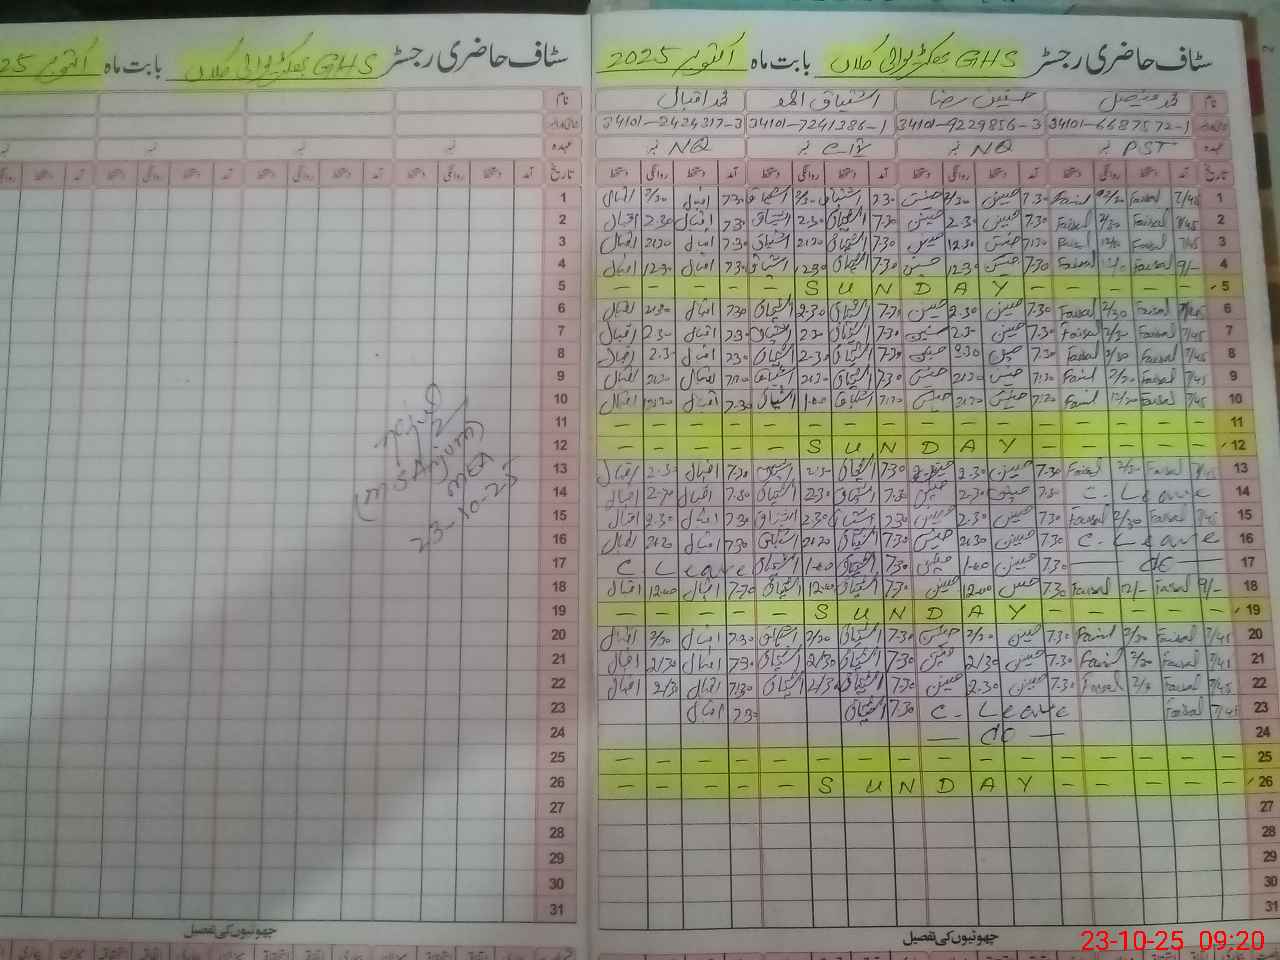 سٹاف حاضری رجسٹر GHS بھکڑیوالی کلاں بابت ماہ اکتوبر 2025
نام محمد فیصل حسنین رضا اشتیاق احمد محمد اقبال
34101-6687572-1 34101-9229856-3 34101-7241386-1 34101-2424317-3
عہدہ PST نمبر NQ نمبر C-IV نمبر NQ نمبر
تاریخ آمد دستخط روانگی دستخط آمد دستخط روانگی دستخط آمد دستخط روانگی دستخط آمد دستخط روانگی دستخط
1 7/45 Faisal 2/30 Faisal 7.30 حسنین 2/30 حسنین 7.30 اشتیاق 2/30 اشتیاق 7.30 اقبال 2/30 اقبال
2 7/45 Faisal 2/30 Faisal 7.30 حسنین 2.30 حسنین 7.30 اشتیاق 2.30 اشتیاق 7.30 اقبال 2.30 اقبال
3 7/45 Faisal Faisal 7.30 حسنین 12.30 حسنین 7.30 اشتیاق اشتیاق 7.30 اقبال اقبال
4 9/- Faisal Faisal 7.30 حسنین 12.30 حسنین 7.30 اشتیاق 12.30 اشتیاق 7.30 اقبال 12.30 اقبال
5 - - - - - S U N D A Y - - - - -
6 7/45 Faisal 2/30 Faisal 7.30 حسنین 2.30 حسنین 7.30 اشتیاق 2.30 اشتیاق 7.30 اقبال 2.30 اقبال
7 7/45 Faisal 2/30 Faisal 7.30 حسنین 2.30 حسنین 7.30 اشتیاق 2.30 اشتیاق 7.30 اقبال 2.30 اقبال
8 7/45 Faisal 2/30 Faisal 7.30 حسنین 2.30 حسنین 7.30 اشتیاق 2.30 اشتیاق 7.30 اقبال 2.30 اقبال
9 7/45 Faisal 2/30 Faisal 7.30 حسنین 2.30 حسنین 7.30 اشتیاق 2.30 اشتیاق 7.30 اقبال 2.30 اقبال
10 7/45 Faisal 12/30 Faisal 7.30 حسنین حسنین اشتیاق 1.00 اشتیاق 7.30 اقبال اقبال
11 - - - - - - - - - - - - - - - -
12 - - - - - S U N D A Y - - - - -
13 Faisal 2/30 Faisal 7.30 حسنین 2.30 حسنین 7.30 اشتیاق 2.30 اشتیاق 7.30 اقبال 2.30 اقبال
14 C. Leave 7.30 حسنین 2.30 حسنین 7.30 اشتیاق 2.30 اشتیاق 7.30 اقبال اقبال
15 7/45 Faisal 2/30 Faisal 7.30 حسنین 2.30 حسنین 7.30 اشتیاق 2.30 اشتیاق 7.30 اقبال 2.30 اقبال
16 C. Leave 7.30 حسنین 2.30 حسنین 7.30 اشتیاق اشتیاق 7.30 اقبال اقبال
17 — do — 7.30 حسنین 1.00 حسنین 7.30 اشتیاق 1.00 اشتیاق C. Leave
18 9/- Faisal 12/- Faisal 7.30 حسنین 12.00 حسنین 7.30 اشتیاق 12.00 اشتیاق 7.30 اقبال 12.00 اقبال
19 - - - - - S U N D A Y - - - - -
20 7/45 Faisal 2/30 Faisal 7.30 حسنین 2/30 حسنین 7.30 اشتیاق 2/30 اشتیاق 7.30 اقبال 2/30 اقبال
21 7/45 Faisal 2/30 Faisal 7.30 حسنین 2/30 حسنین 7.30 اشتیاق 2/30 اشتیاق 7.30 اقبال 2/30 اقبال
22 7/45 Faisal Faisal 7.30 حسنین 2.30 حسنین 7.30 اشتیاق 2/30 اشتیاق 7.30 اقبال 2/30 اقبال
23 7/45 Faisal C. Leave 7.30 اشتیاق 7.30 اقبال
24 — do —
25 - - - - - - - - - - - - - - - -
26 - - - - - S U N D A Y - - - - -
27
28
29
30
31
چھوٹیوں کی تفصیل
سٹاف حاضری رجسٹر GHS بھکڑیوالی کلاں بابت ماہ اکتوبر 25
نام
عہدہ نمبر نمبر نمبر نمبر
تاریخ آمد دستخط روانگی دستخط آمد دستخط روانگی دستخط آمد دستخط روانگی دستخط آمد دستخط روانگی
1
2
3
4
5
6
7
8
9
10
11
12
13
14
15
16
17
18
19
20
21
22
23
24
25
26
27
28
29
30
31
(M S Anjum)
MEA
23-10-25
چھوٹیوں کی تفصیل
23-10-25 09:20